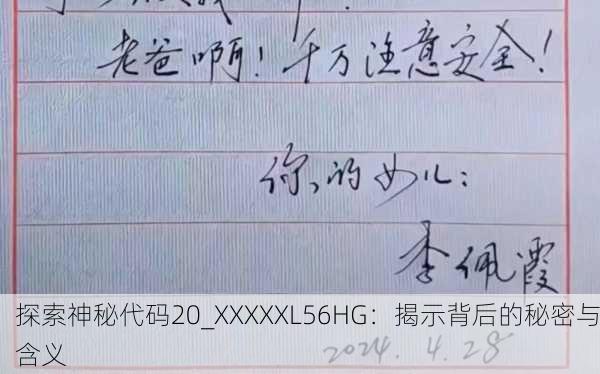 老爸啊！千万注意安全！
你的女儿：
李佩霞
探索神秘代码20_XXXXXL56HG：揭示背后的秘密与
含义
2024.4.28